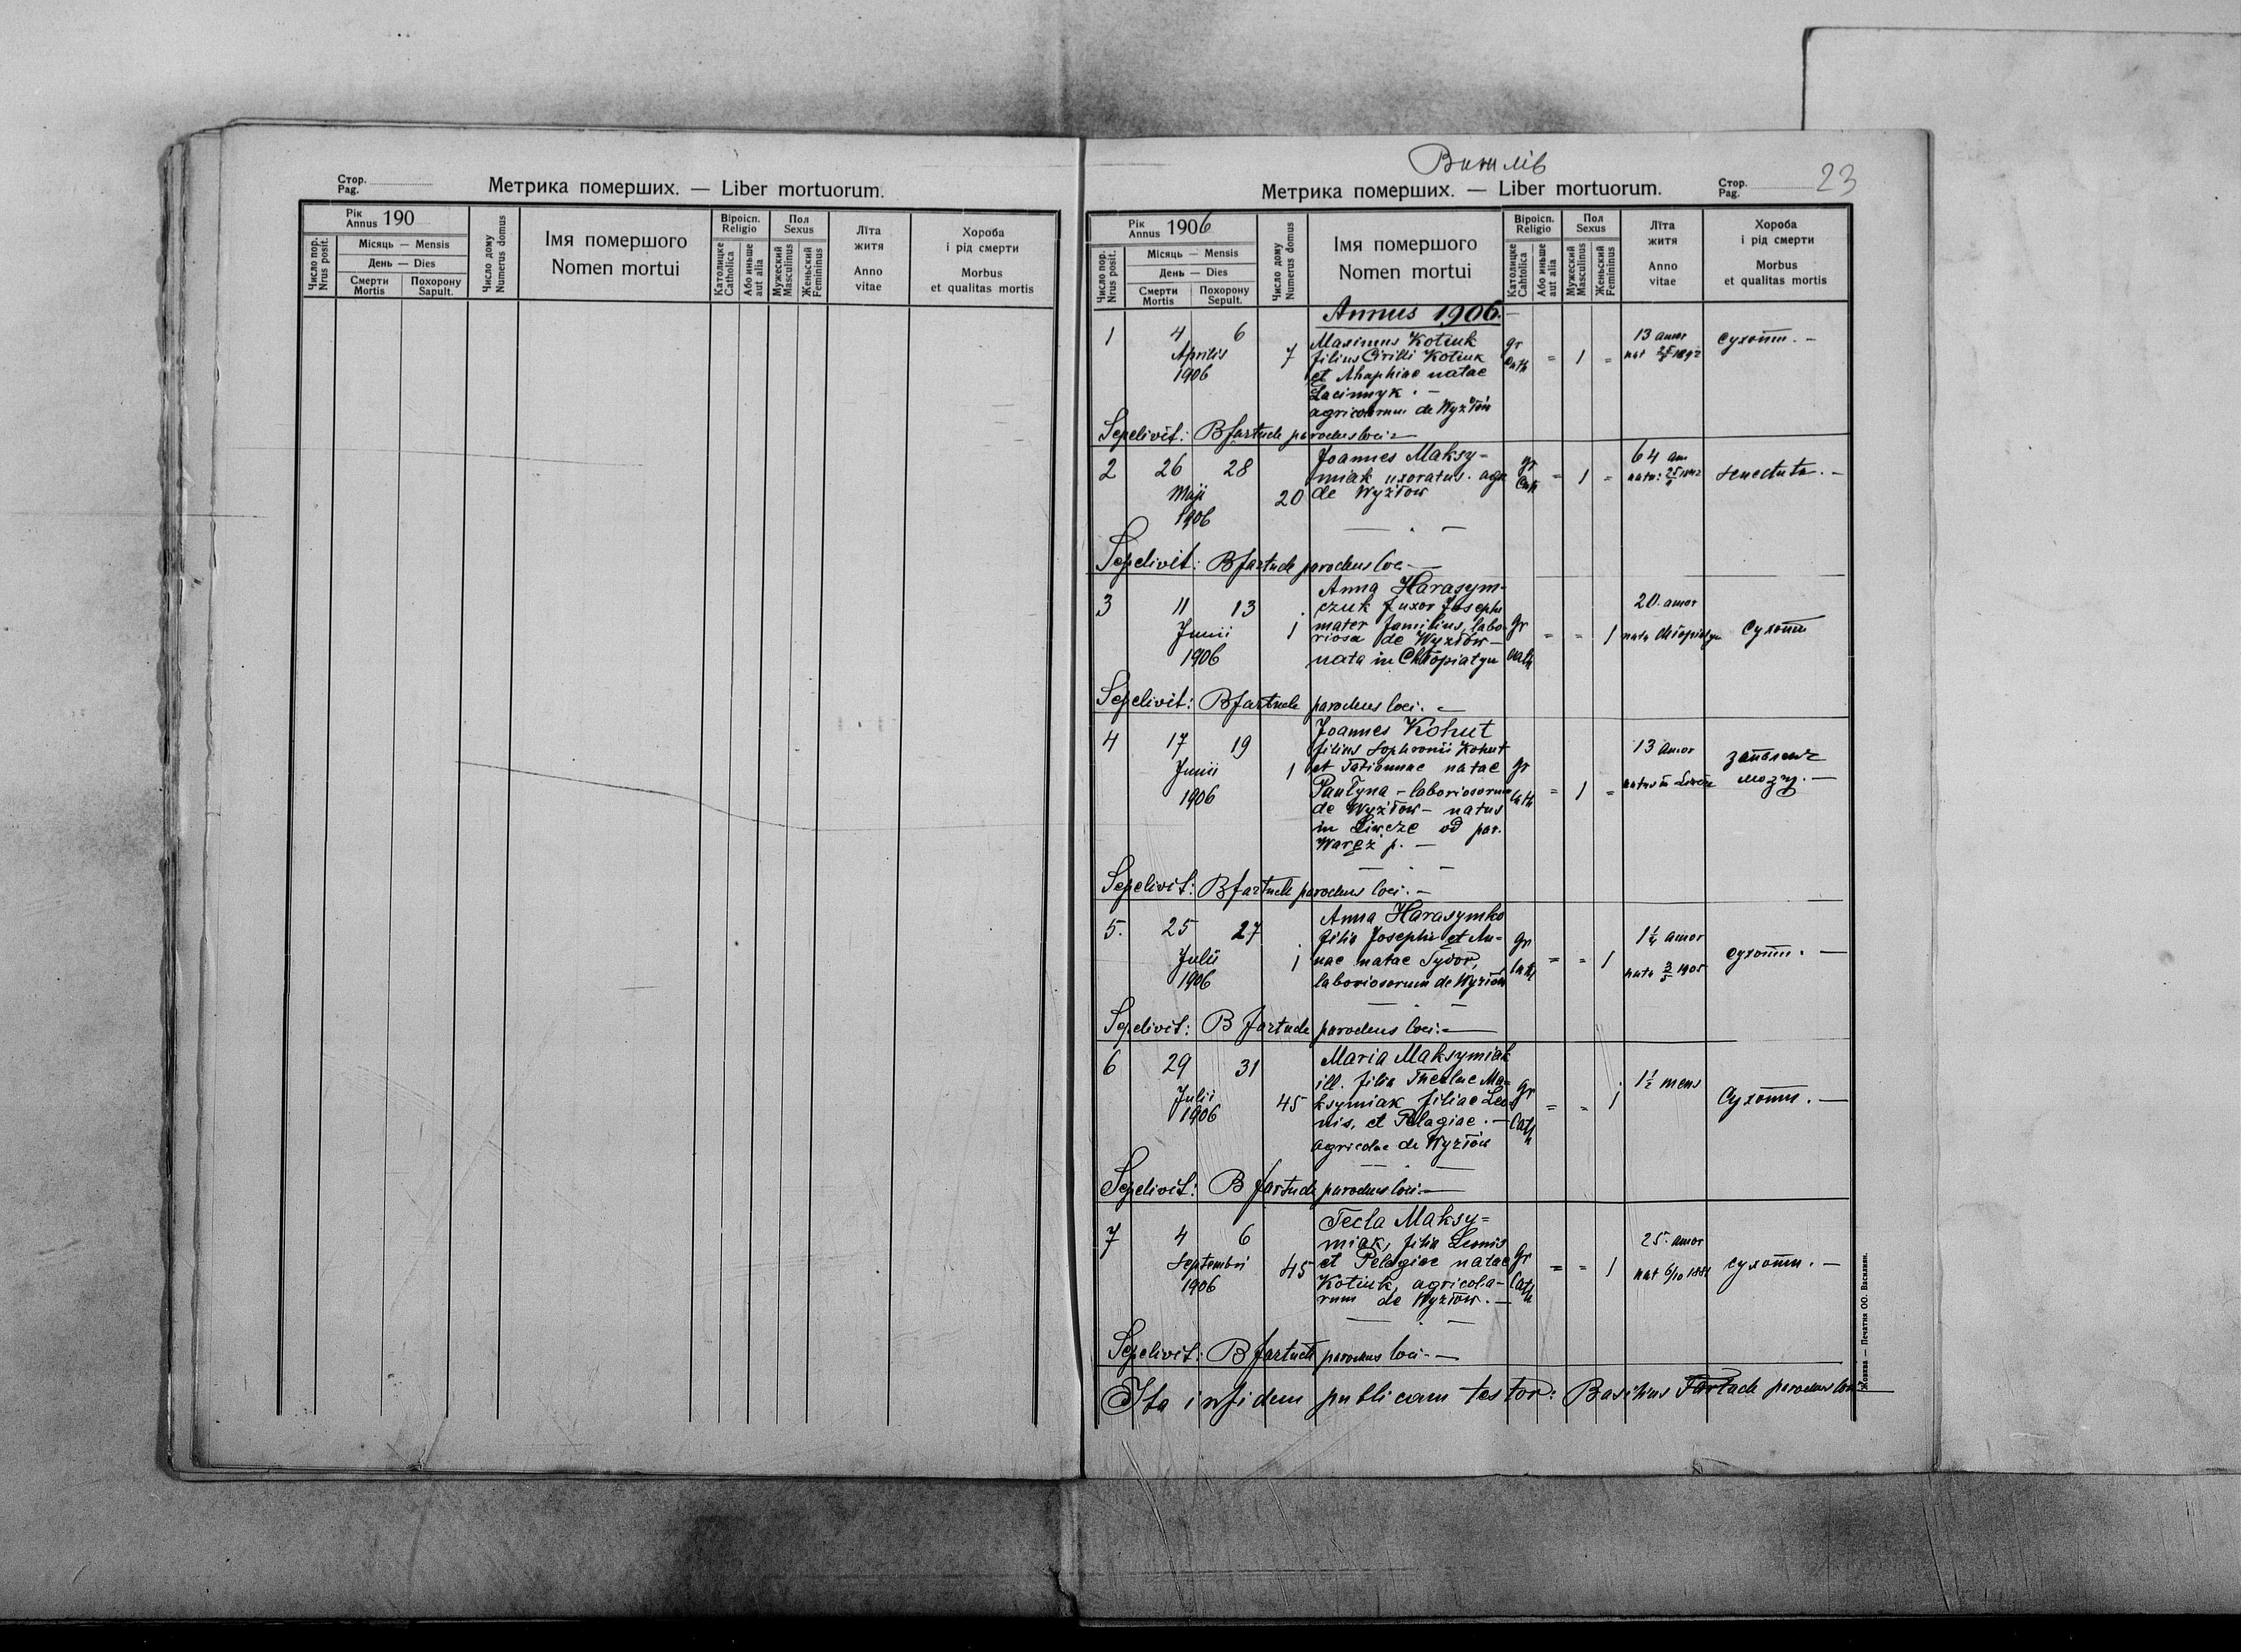 Стор.
Pag.
Метрика померших. — Liber mortuorum.
Рік
Annus 190
Місяць — Mensis
День — Dies
Число пор.
Nrus posit.
Смерти
Mortis
Похорону
Sepult.
Число дому
Numerus domus
Імя помершого
Nomen mortui
Віроісп.
Religio
Католицке
Catholica
Або иньше
aut alia
Пол
Sexus
Мужеский
Masculinus
Женьский
Femininus
Лїта
житя
Anno
vitae
Хороба
і рід смерти
Morbus
et qualitas mortis
Вижлів
Метрика померших. — Liber mortuorum.
Стор.
Pag. 23
Рік
Annus 1906
Місяць — Mensis
День — Dies
Число пор.
Nrus posit.
Смерти
Mortis
Похорону
Sepult.
Число дому
Numerus domus
Імя помершого
Nomen mortui
Віроісп.
Religio
Католицке
Catholica
Або иньше
aut alia
Пол
Sexus
Мужеский
Masculinus
Женьский
Femininus
Лїта
житя
Anno
vitae
Хороба
і рід смерти
Morbus
et qualitas mortis
Annus 1906. —
1 4 6 Aprilis 1906 7
Maximus Kotiuk
filius Cirilli Kotiuk
et Ahaphiae natae
agricolarum de Wyżłów
gr cath = 1 =
13 annor
сухоти. —
Sepelivit: B fartuch parochus loci —
2 26 28 Maji 1906 20
Joannes Maksy=
miak uxoratus. agr
de Wyżłow
gr Cath = 1 =
64 an
senectute. —
Sepelivit: B fartuch parochus loci —
3 11 13 Junii 1906 1
Anna Harasym-
czuk uxor Josephi
mater familias, labo-
riosa de Wyżłów —
nata in Chłopiatyn
gr cath = = 1
20. annor
nata Chłopiatyn
Сухоти
Sepelivit: B fartuch parochus loci. —
4 17 19 Junii 1906 1
Joannes Kohut
filius Sophronii Kohut
et Tatiannae natae
Pautyna — laboriosorum
de Wyżłow — natus
in Liwcze od par.
Waręż p. —
gr cath = 1 =
13 annor
natus in Liwcze
запаленє
мозгу. —
Sepelivit: B fartuch parochus loci. —
5. 25 27 Julii 1906 1
Anna Harasymko
filia Josephi et An-
nae natae Sydor,
laboriosorum de Wyżłów
gr cath = = 1
1¼ annor
сухоти. —
Sepelivit: B fartuch parochus loci. —
6 29 31 Julii 1906 45
Maria Maksymiak
ill. filia Theclae Ma-
ksymiak filiae Leo-
nis, et Pelagiae. —
agricolae de Wyżłów
gr Cath = = 1
1½ mens
Сухоти. —
Sepelivit: B fartuch parochus loci —
7 4 6 Septembri 1906 45
Tecla Maksy=
miak, filia Leonis
et Pelagiae natae
Kotiuk, agricola-
rum de Wyżłow. —
gr Cath = = 1
25. annor
nat 6/10 1881
сухоти. —
Sepelivit: B fartuch parochus loci —
Ita in fidem publicam testor: Basilius Fartuch parochus loci
Жовква — Печатня ОО. Василиян.